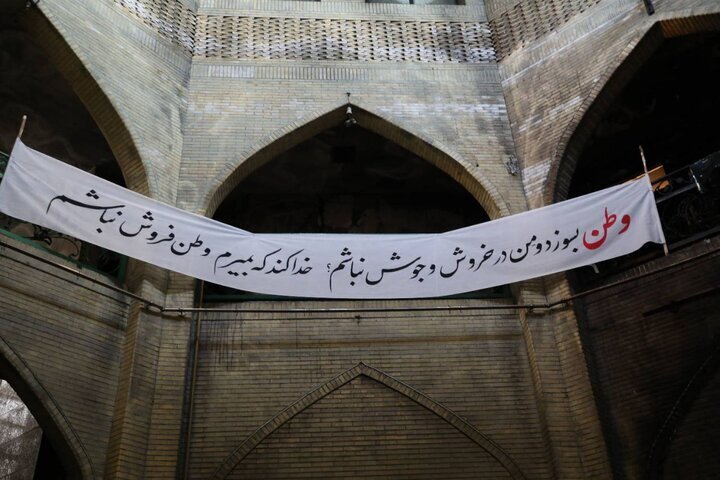 وطن بسوزد و من در خروش و جوش نباشم؟ خدا کند که بمیرم وطن فروش نباشم